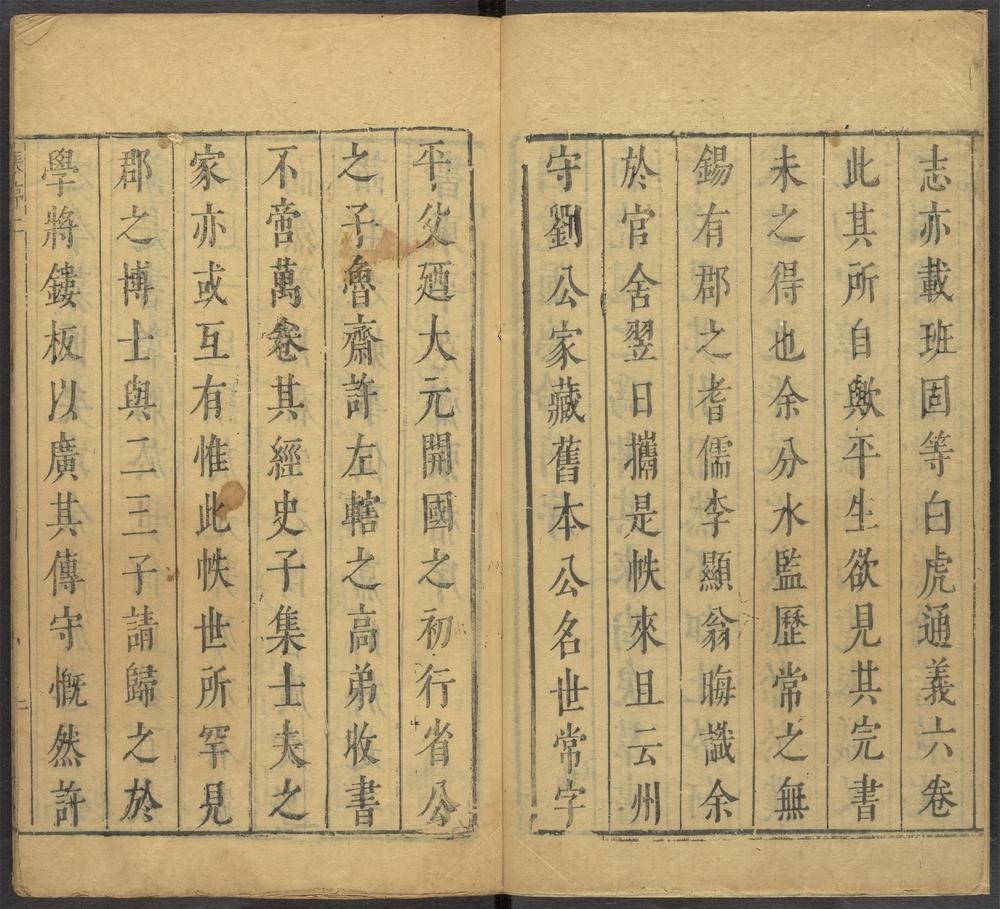 志亦載班固等白虎通義六卷
此其所自歟平生欲見其完書
未之得也余分水監歷常之無
錫有郡之耆儒李顯翁晦識余
於官舍翌日攜是帙來且云州
守劉公家藏舊本公名世常字
平父迺大元開國之初行省公
之子魯齋許左轄之高弟收書
不啻萬卷其經史子集士夫之
家亦或互有惟此帙世所罕見
郡之博士與二三子請歸之於
學將鏤板以廣其傳守慨然許